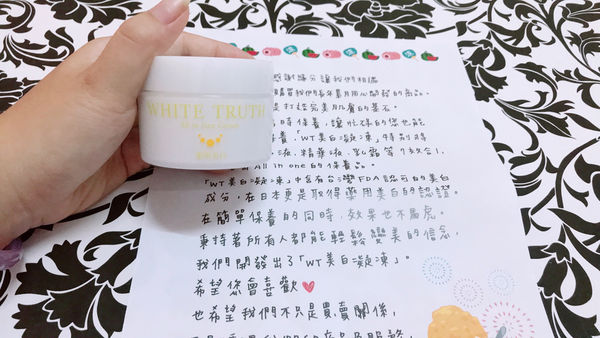 感謝緣分讓我們相遇
購買我們長年累月用心開發的商品。
是打造完美肌膚的基石。
時保養,讓忙碌的您也能
保養.「WT美白凝凍」特別將
液.精華液.乳霜等7效合1.
All in one 的保養品。
「WT美白凝凍」中含有台灣FDA認可的美白
成分,在日本更是取得藥用美白的認證。
在簡單保養的同時,效果也不馬虎。
秉持著所有人都能輕鬆變美的信念,
我們開發出了「WT美白凝凍」。
希望您會喜歡
也希望我們不只是買賣關係,
WHITE TRUTH